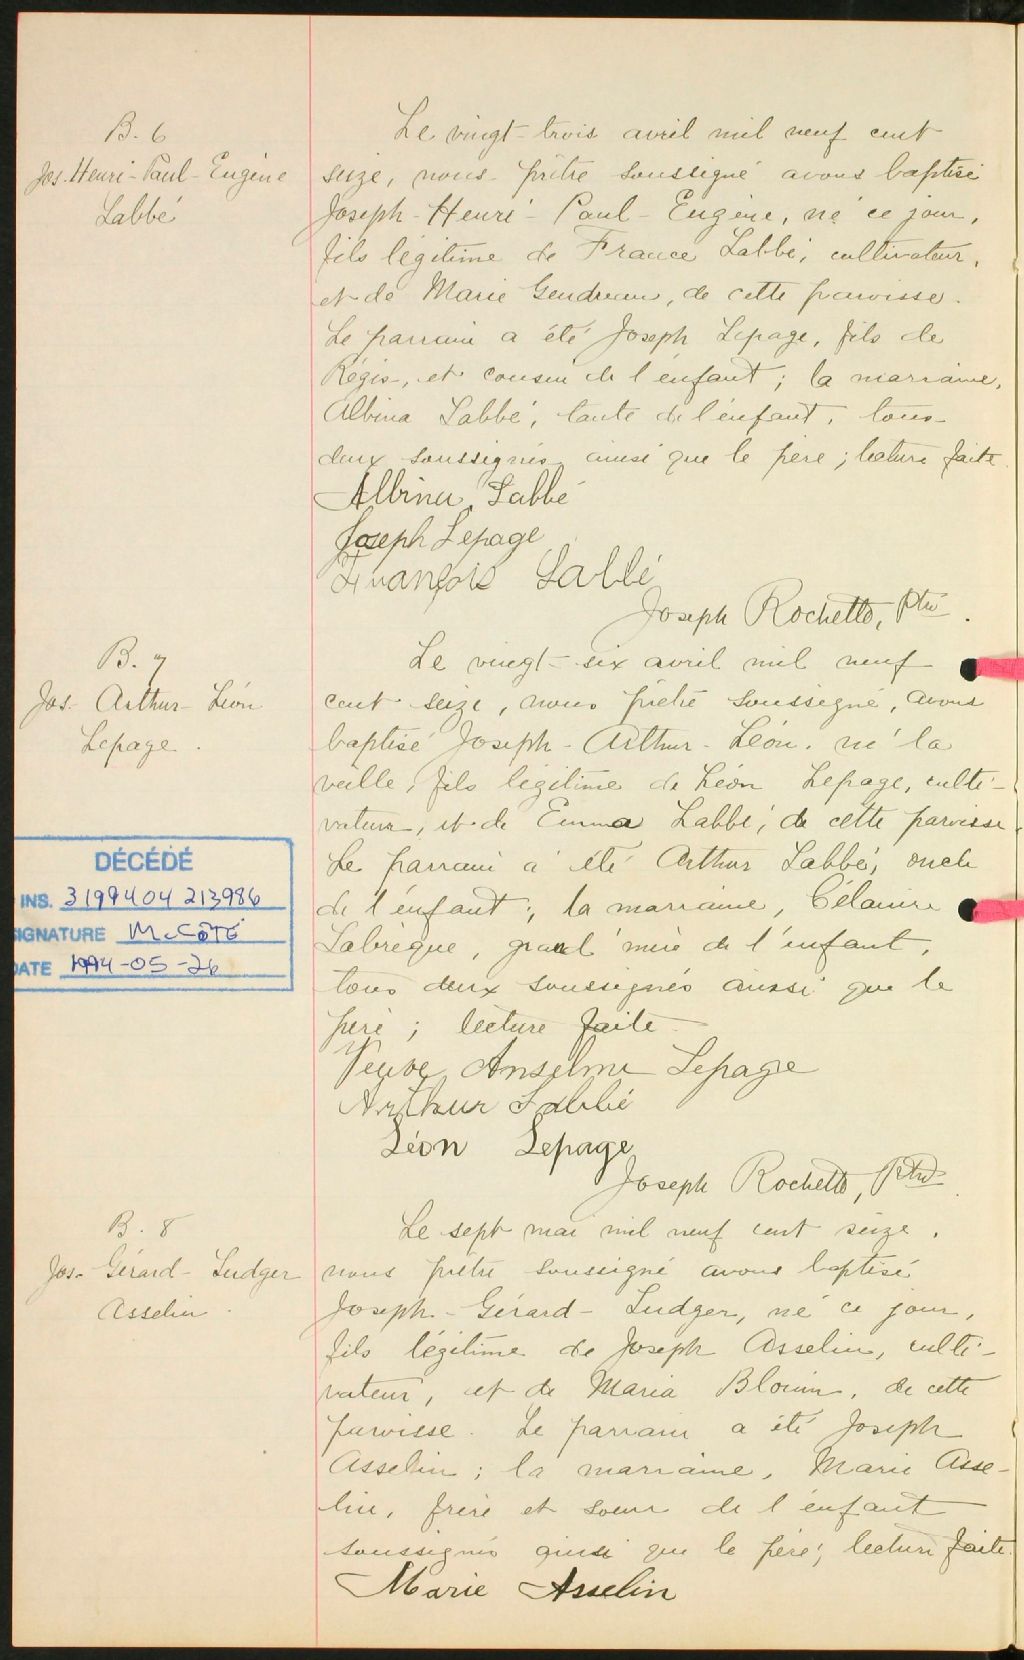 B. 6
Jos. Henri-Paul-Eugène
Labbé
Le vingt-trois avril mil neuf cent
seize, nous prêtre soussigné avons baptisé
Joseph-Henri-Paul-Eugène, né ce jour,
fils légitime de France Labbé, cultivateur,
et de Marie Gendreau, de cette paroisse.
Le parrain a été Joseph Lepage, fils de
Régis, et cousin de l'enfant; la marraine,
Albina Labbé, tante de l'enfant, tous
deux soussignés ainsi que le père; lecture faite.
Albina Labbé
Joseph Lepage
François Labbé
Joseph Rochette, Ptre.
B. 7
Jos. Arthur-Léon
Lepage.
Le vingt-six avril mil neuf
cent seize, nous prêtre soussigné, avons
baptisé Joseph-Arthur-Léon, né la
veille, fils légitime de Léon Lepage, culti-
vateur, et de Emma Labbé, de cette paroisse.
Le parrain a été Arthur Labbé, oncle
de l'enfant; la marraine, Célanire
Labrèque, grand'mère de l'enfant,
tous deux soussignés aussi que le
père; lecture faite.
Veuve Anselme Lepage
Arthur Labbé
Léon Lepage
Joseph Rochette, Ptre.
DÉCÉDÉ
INS. 3199404 213986
SIGNATURE M. CÔTÉ
DATE 1994-05-26
B. 8
Jos. Gérard-Ludger
Asselin.
Le sept mai mil neuf cent seize,
nous prêtre soussigné avons baptisé
Joseph-Gérard-Ludger, né ce jour,
fils légitime de Joseph Asselin, culti-
vateur, et de Maria Blouin, de cette
paroisse. Le parrain a été Joseph
Asselin; la marraine, Marie Asse-
lin, frère et soeur de l'enfant
soussignés ainsi que le père; lecture faite.
Marie Asselin